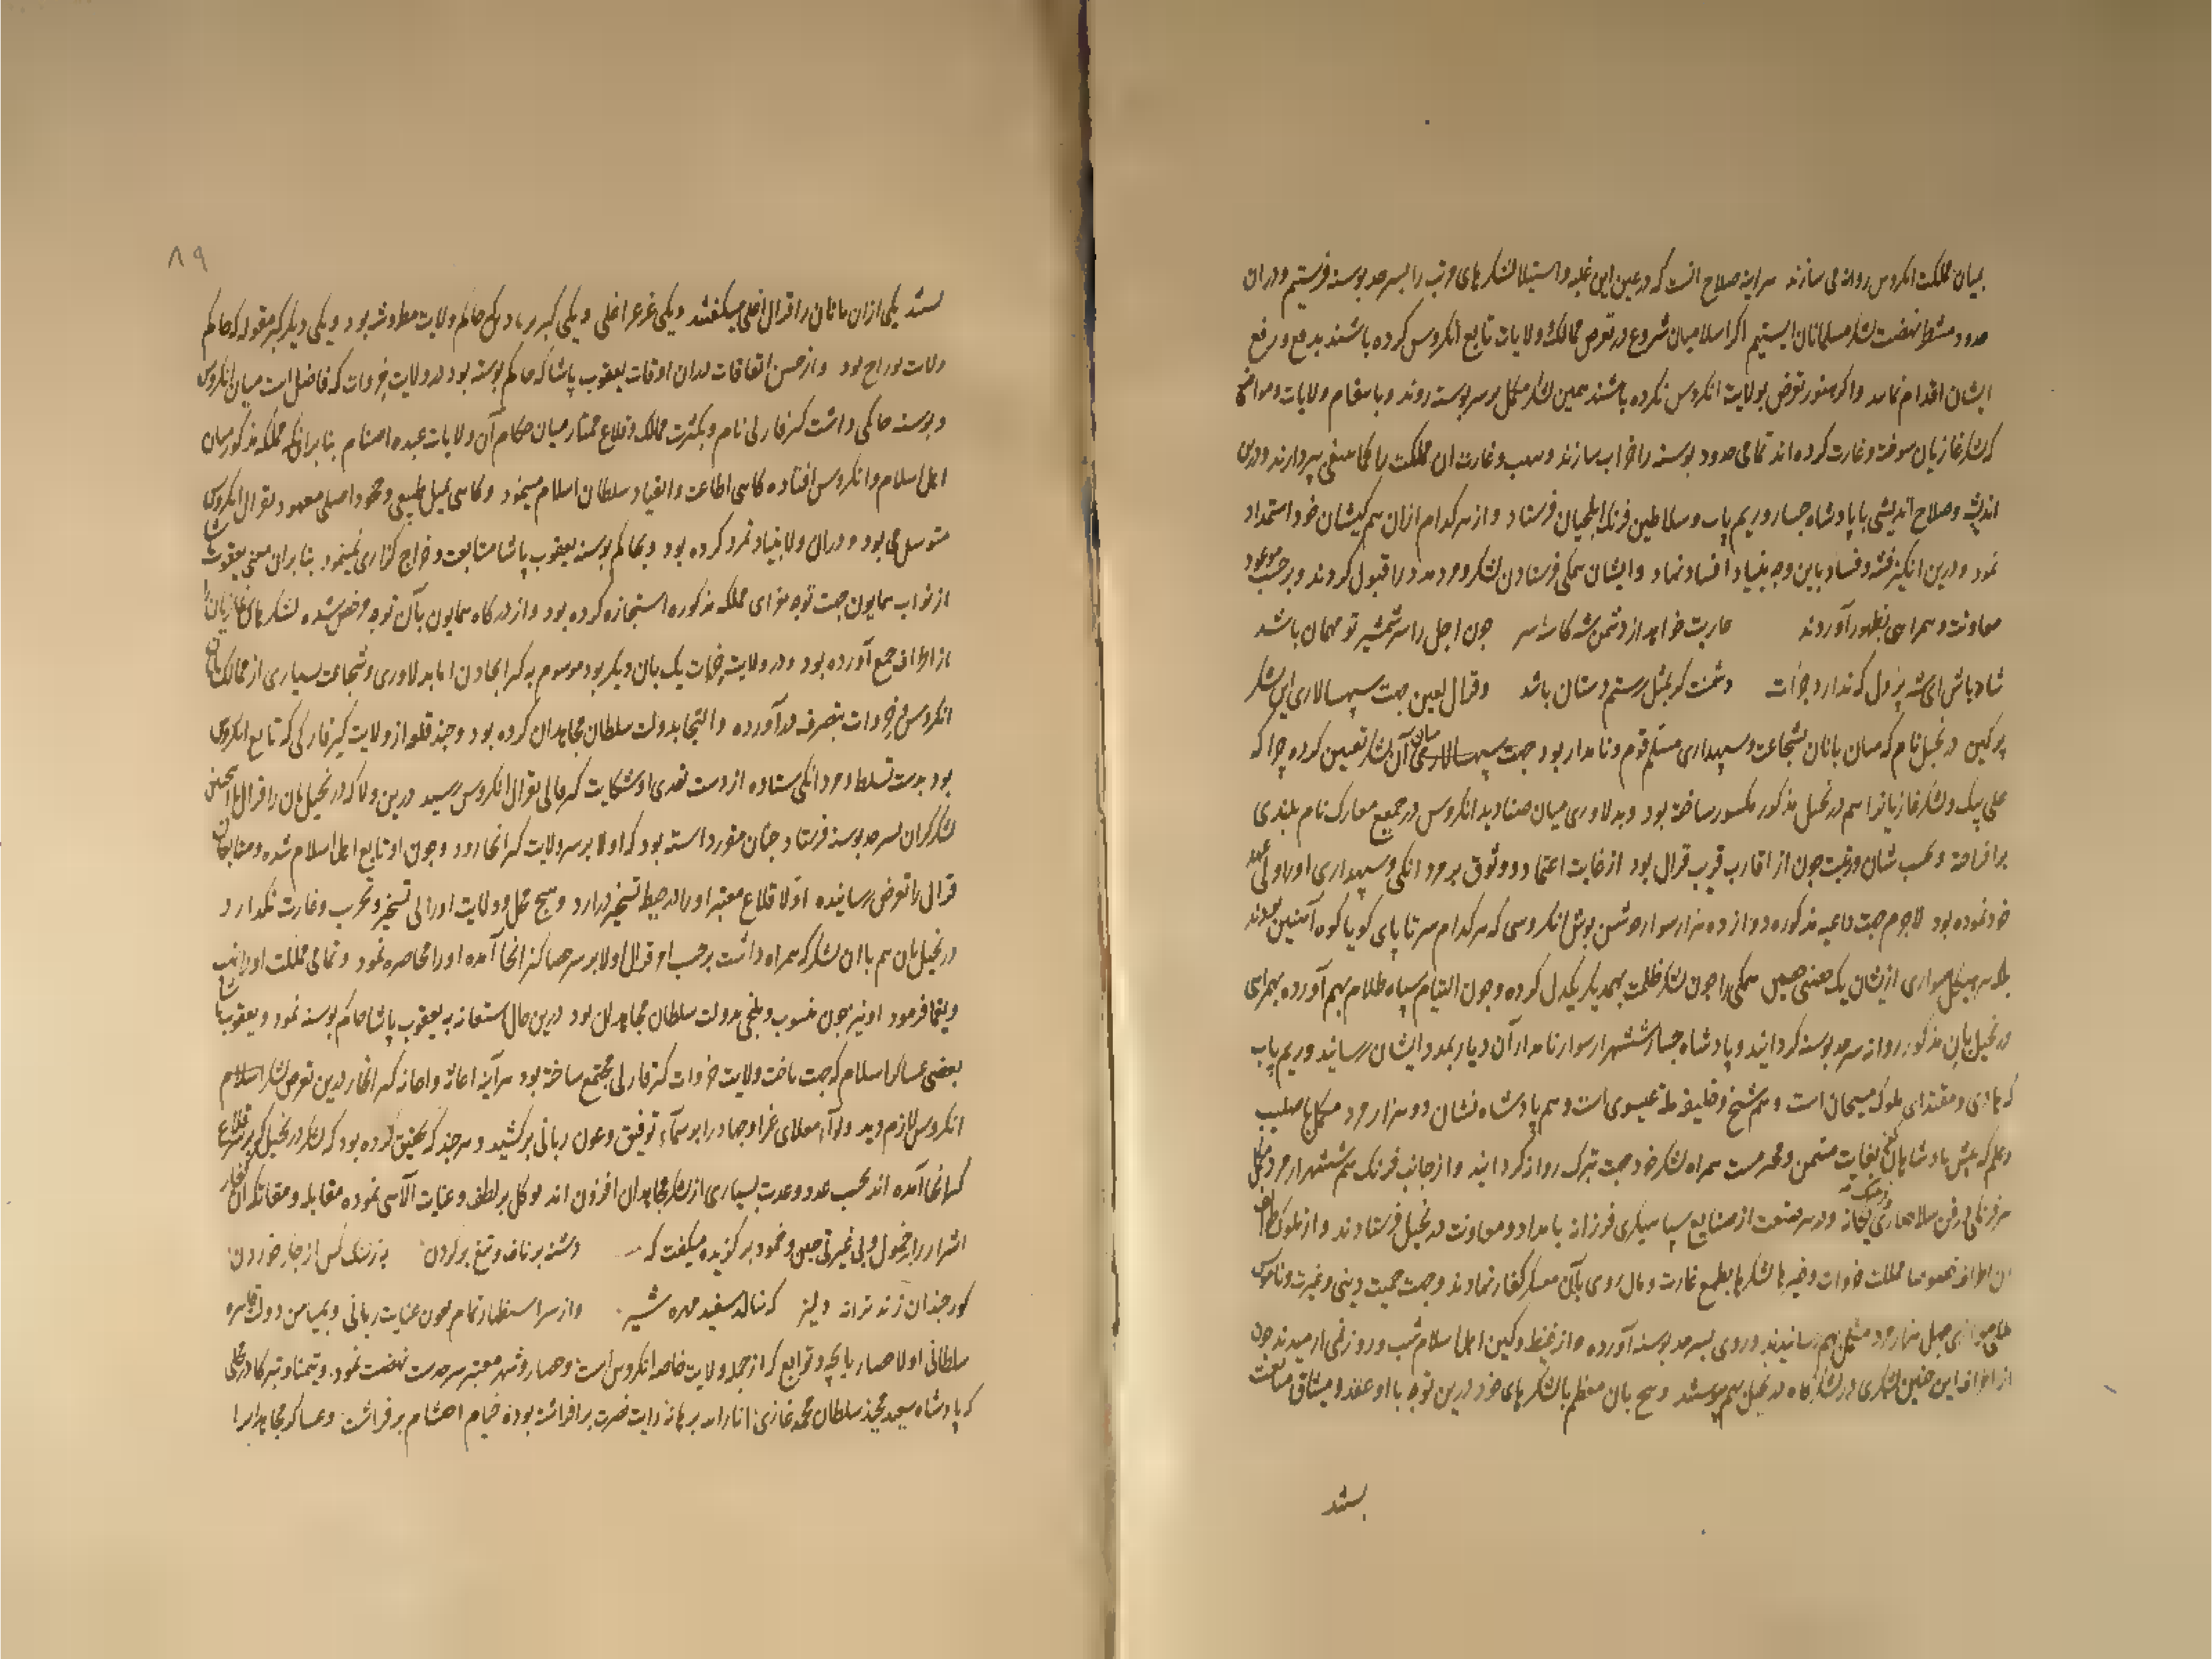 بمیان مملکت انکروس روانه می سازند هر اینه صلاح انست که در عین این غلبه و استیلا لشکرهای مرتب را بسرحد بوسنه فرستیم و دران
حدود منتظر نهضت لشکر مسلمانان ایستیم اکر اسلامیان شروع در تعرض ممالک و ولایات تابع انکروس کرده باشند بدفع و رفع
ایشان اقدام نمایند و اکر هنوز تعرض بولایت انکروس نکرده باشند همین لشکر مکمل بر سر بوسنه روند و بانتقام ولایات و مواضع
که لشکر غازیان سوخته و غارت کرده اند تمامی حدود بوسنه را خراب سازند و نهب و غارت ان مملکت را کما ینبغی بپردازند و درین
اندیشه و صلاح اندیشی با پادشاه جسار و ریم پاپ و سلاطین فرنک ایلچیان فرستاد و از هر کدام ازان هم کیشان خود استمداد
نمود و درین انکیز فتنه و فساد باین وجه بنیاد افساد نهاد و ایشان همکی فرستادن لشکر و مرد مدد را قبول کردند و برحسب موعود
معاونت و همراهی بظهور آوردند عاریت خواهد از دشمن شه کاسه سر چون اجل را سر شمشیر تو مهمان باشد
شاد باش ای شه پردل که ندارد جرات دشمنت کر بمثل رستم دستان باشد و قرال لعین جهت سپهسالاری این لشکر
پرکین درنجیل نام که میان بانان بشجاعت و سپهداری مسلم قوم و نامدار بود جهت سپهسالاری آن لشکر تعیین کرده چرا که
علی بیک و لشکر غازیانرا هم درنجیل مذکور مکسور ساخته بود و بدلاوری میان صنادید انکروس در جمیع معارک نام بلندی
برافراخته و بحسب شان و رتبت چون از اقارب قریب قرال بود از غایت اعتماد و وثوق بمردانکی و سپهداری او را ولی عهد
خود نموده بود لاجرم جهت داعیه مذکوره دوازده هزار سوار جوشن پوش انکروسی که هر کدام سر تا پای کویا کوه آهنین بودند
بلکه هر هیکل سواری ازیشان یک حصنی حصین همکی را چون لشکر ظلمت بهمدیکر یکدل کرده و چون التیام سپاه ظلام بهم آورده بهمراهی
درنجیل بان مذکور روانه سرحد بوسنه کردانید و پادشاه جسار ششهزار سوار نامدار آن دیار بمدد ایشان رسانید و ریم پاپ
که هادی و مقتدای ملوک مسیحیان است و هم شیخ و خلیفه ملة عیسوی است و هم پادشاه نشان دو هزار مرد مکمل با صلیب
و علم که پیش پادشاهان بغایت متیمن و محترمست همراه لشکر خود جهت تبرک روانه کردانید و از جانب فرنک هم ششهزار مرد مکمل
هر فرنکی در فن سلاحداری یکانه و در هر صنعت از صنایع سپاهیکری فرزانه بامداد و معاونت درنجیل فرستادند و از ملوک اطراف
ان اطراف خصوصا مملکت خروات و غیره با لشکرها بطمع غارت و مال روی بآن معسکر کفار نهادند و جهت حمیت دینی و غیرت و ناموس
موازی چهل هزار مرد مکمل بهم رسانیدند و روی بسرحد بوسنه آورده و از غیظ و کین اهل اسلام شب و روز نمی آرمیدند چون
از اطراف این چنین لشکری در لشکرکاه درنجیل بهم پیوستند و پنج بان معظم با لشکرهای خود درین توجه با او عقد و میثاق متابعت
بستند
۸۹
بستند یکی ازان بانان را قرال اخلی میکفتند و یکی غرغر اخلی و یکی حاکم ولایت بود و یکی دیکر کبر مقوله که حاکم
ولایت بود و از حسن اتفاقات دران اوقات یعقوب پاشا که حاکم بوسنه بود در ولایت خروات که فاصل است میان انکروس
و بوسنه حاکمی داشت کبرفارلی نام و بکثرت ممالک و قلاع ممتاز میان حکام آن ولایات عبده اصنام بنابرانکه مملکه مذکور میان
اهل اسلام و انکروس افتاده کاهی اطاعت و انقیاد سلطان اسلام مینمود و کاهی بمیل طبیعی و جحود اصلی معهود بقرال انکروس
متوسل می بود و دران ولا بنیاد تمرد کرده بود و بحاکم بوسنه یعقوب پاشا متابعت و خراج کذاری نمینمود بنابران معنی یعقوب پاشا
از نواب همایون جهت توجه بغزای مملکه مذکوره استجازه کرده بود و از درکاه همایون بآن توجه مرخص شده لشکرهای غازیان را
از اطراف جمع آورده بود و در ولایت خروات یک بان دیکر بود موسوم به کبر انجا و ان اما بدلاوری و شجاعت بسیاری از ممالک
انکروس و خروات بتصرف درآورده و التجا بدولت سلطان مجاهدان کرده بود و چند قلعه از ولایت کبرفارلی که تابع انکروس
بود بدست تسلط و مردانکی ستاده از دست تعدی او شکایت کبرفارلی بقرال انکروس رسید درین ولا که درنجیل بان را قرال با چنین
لشکر کران بسرحد بوسنه فرستاد چنان مقرر داشته بود که اولا بر سر ولایت کبر انجا رود و چون او تابع اهل اسلام شده و متابعان
قرال را تعرض رسانیده اولا قلاع معتبر او را در حیطه تسخیر درآرد و هیچ محل و ولایت او را بی تسخیر و تخریب و غارت نکذارد
درنجیل بان هم با ان لشکر که همراه داشت برحسب امر قرال اولا بر سر حصار کبر انجا آمده او را محاصره نمود و تمامی مملکت او را نهب
و یغما فرمود او نیز چون منسوب و ملتجی بدولت سلطان مجاهدان بود درین حال استعانه به یعقوب پاشا حاکم بوسنه نمود و یعقوب پاشا
بعضی عساکر اسلام که جهت تاخت ولایت خروات کبرفارلی مجتمع ساخته بود هر آینه اعانه و امداد کبر انجا درین تعرض لشکر اسلام
انکروس لازم دید و لوآء مولای غزا و جهاد را بر سمآء توفیق و عون ربانی برکشید و هر چند که تحقیق کرده بود که لشکر درنجیل که بر سر قلاع
کبر انجا آمده اند بحسب عدد و عدت بسیاری از لشکر مجاهدان افزون اند توکل بر لطف و عنایت الاهی نموده مقابله و مقاتله ان کفار
اشرار را بر خمول و بی غیرتی و خمود برکزیده میکفت که دشنه بر ناف و تیغ بر کردن به ز ننک کس از جا خوردن
کور چندان زند ترانه دلیز که ننالد سفید مهره شیر و از سر استظهار تمام بعون عنایت ربانی و بمیامن دولت قاهره
سلطانی اولا حصار یایچه و توابع که از جمله ولایت خاصه انکروس است و حصار و شهر معتبر سرحدست نهضت نمود و تیمنا و تبرکا در محلی
که پادشاه سعید مجید سلطان محمد غازی انار الله برهانه رایت نصرت برافراشته بوده خیام احتشام برافراشت و عساکر مجاهد را